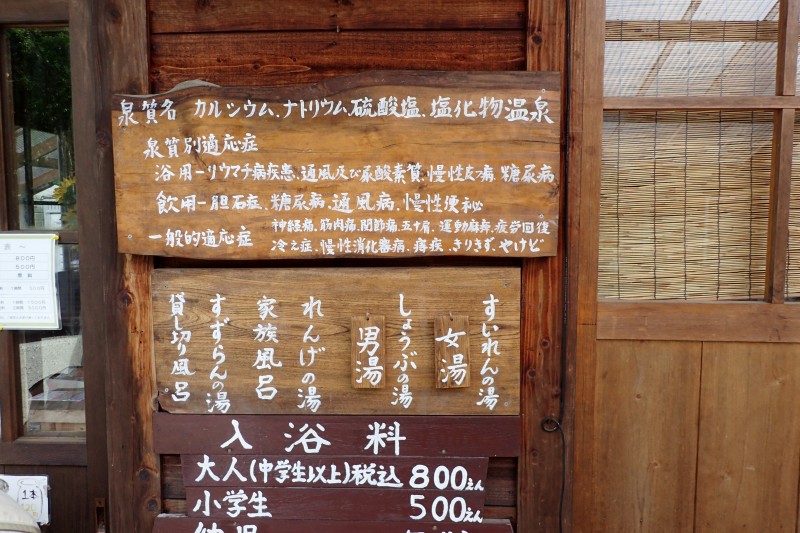 泉質名 カルシウム、ナトリウム、硫酸塩、塩化物温泉
泉質別適応症
浴用ーリウマチ病疾患、通風及び尿酸素質、慢性皮フ病、糖尿病
飲用ー胆石症、糖尿病、通風病、慢性便秘
一般的適応症
神経痛、筋肉痛、関節痛、五十肩、運動麻痺、疲労回復
冷え症、慢性消化器病、痔疾、きりきず、やけど
すいれんの湯
女湯
しょうぶの湯
男湯
れんげの湯
家族風呂
すずらんの湯
貸し切り風呂
入浴料
大人(中学生以上)税込 800えん
小学生 500えん
800円
500円
無料
1本